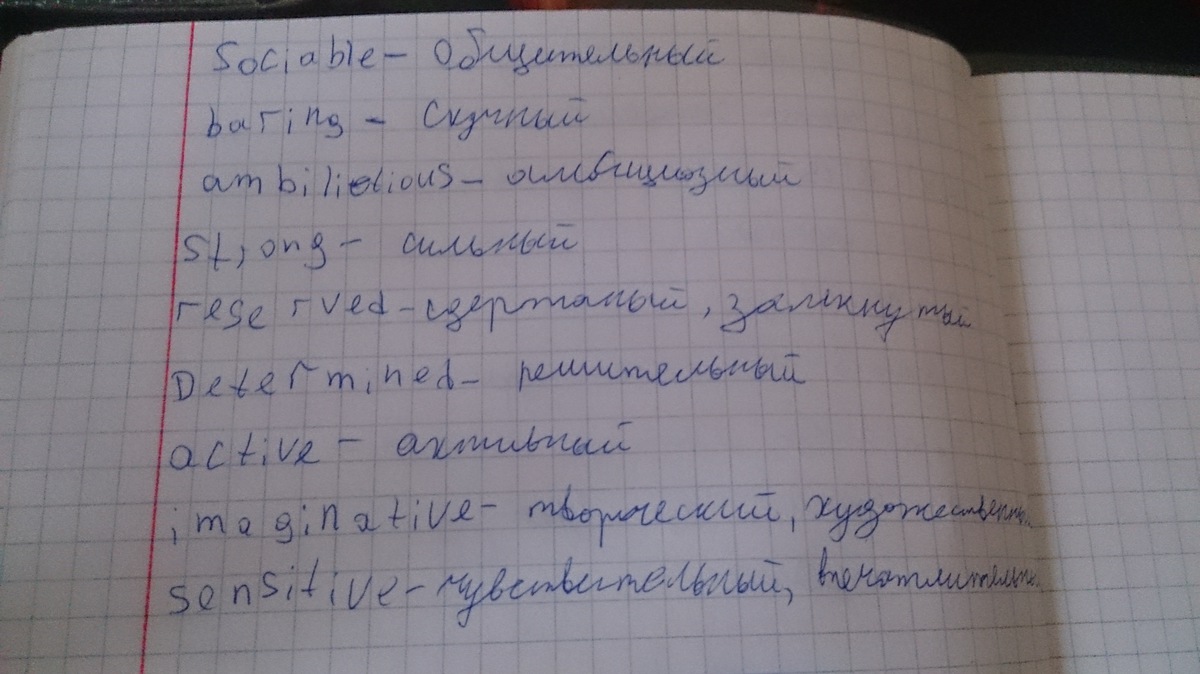 Sociable – Общительный
baring – Скучный
ambilictious – амбициозный
strong – сильный
reserved – сдержаный, замкнутый
Determined – решительный
active – активный
imaginative – творческий, художественный
sensitive – чувствительный, впечатлительный